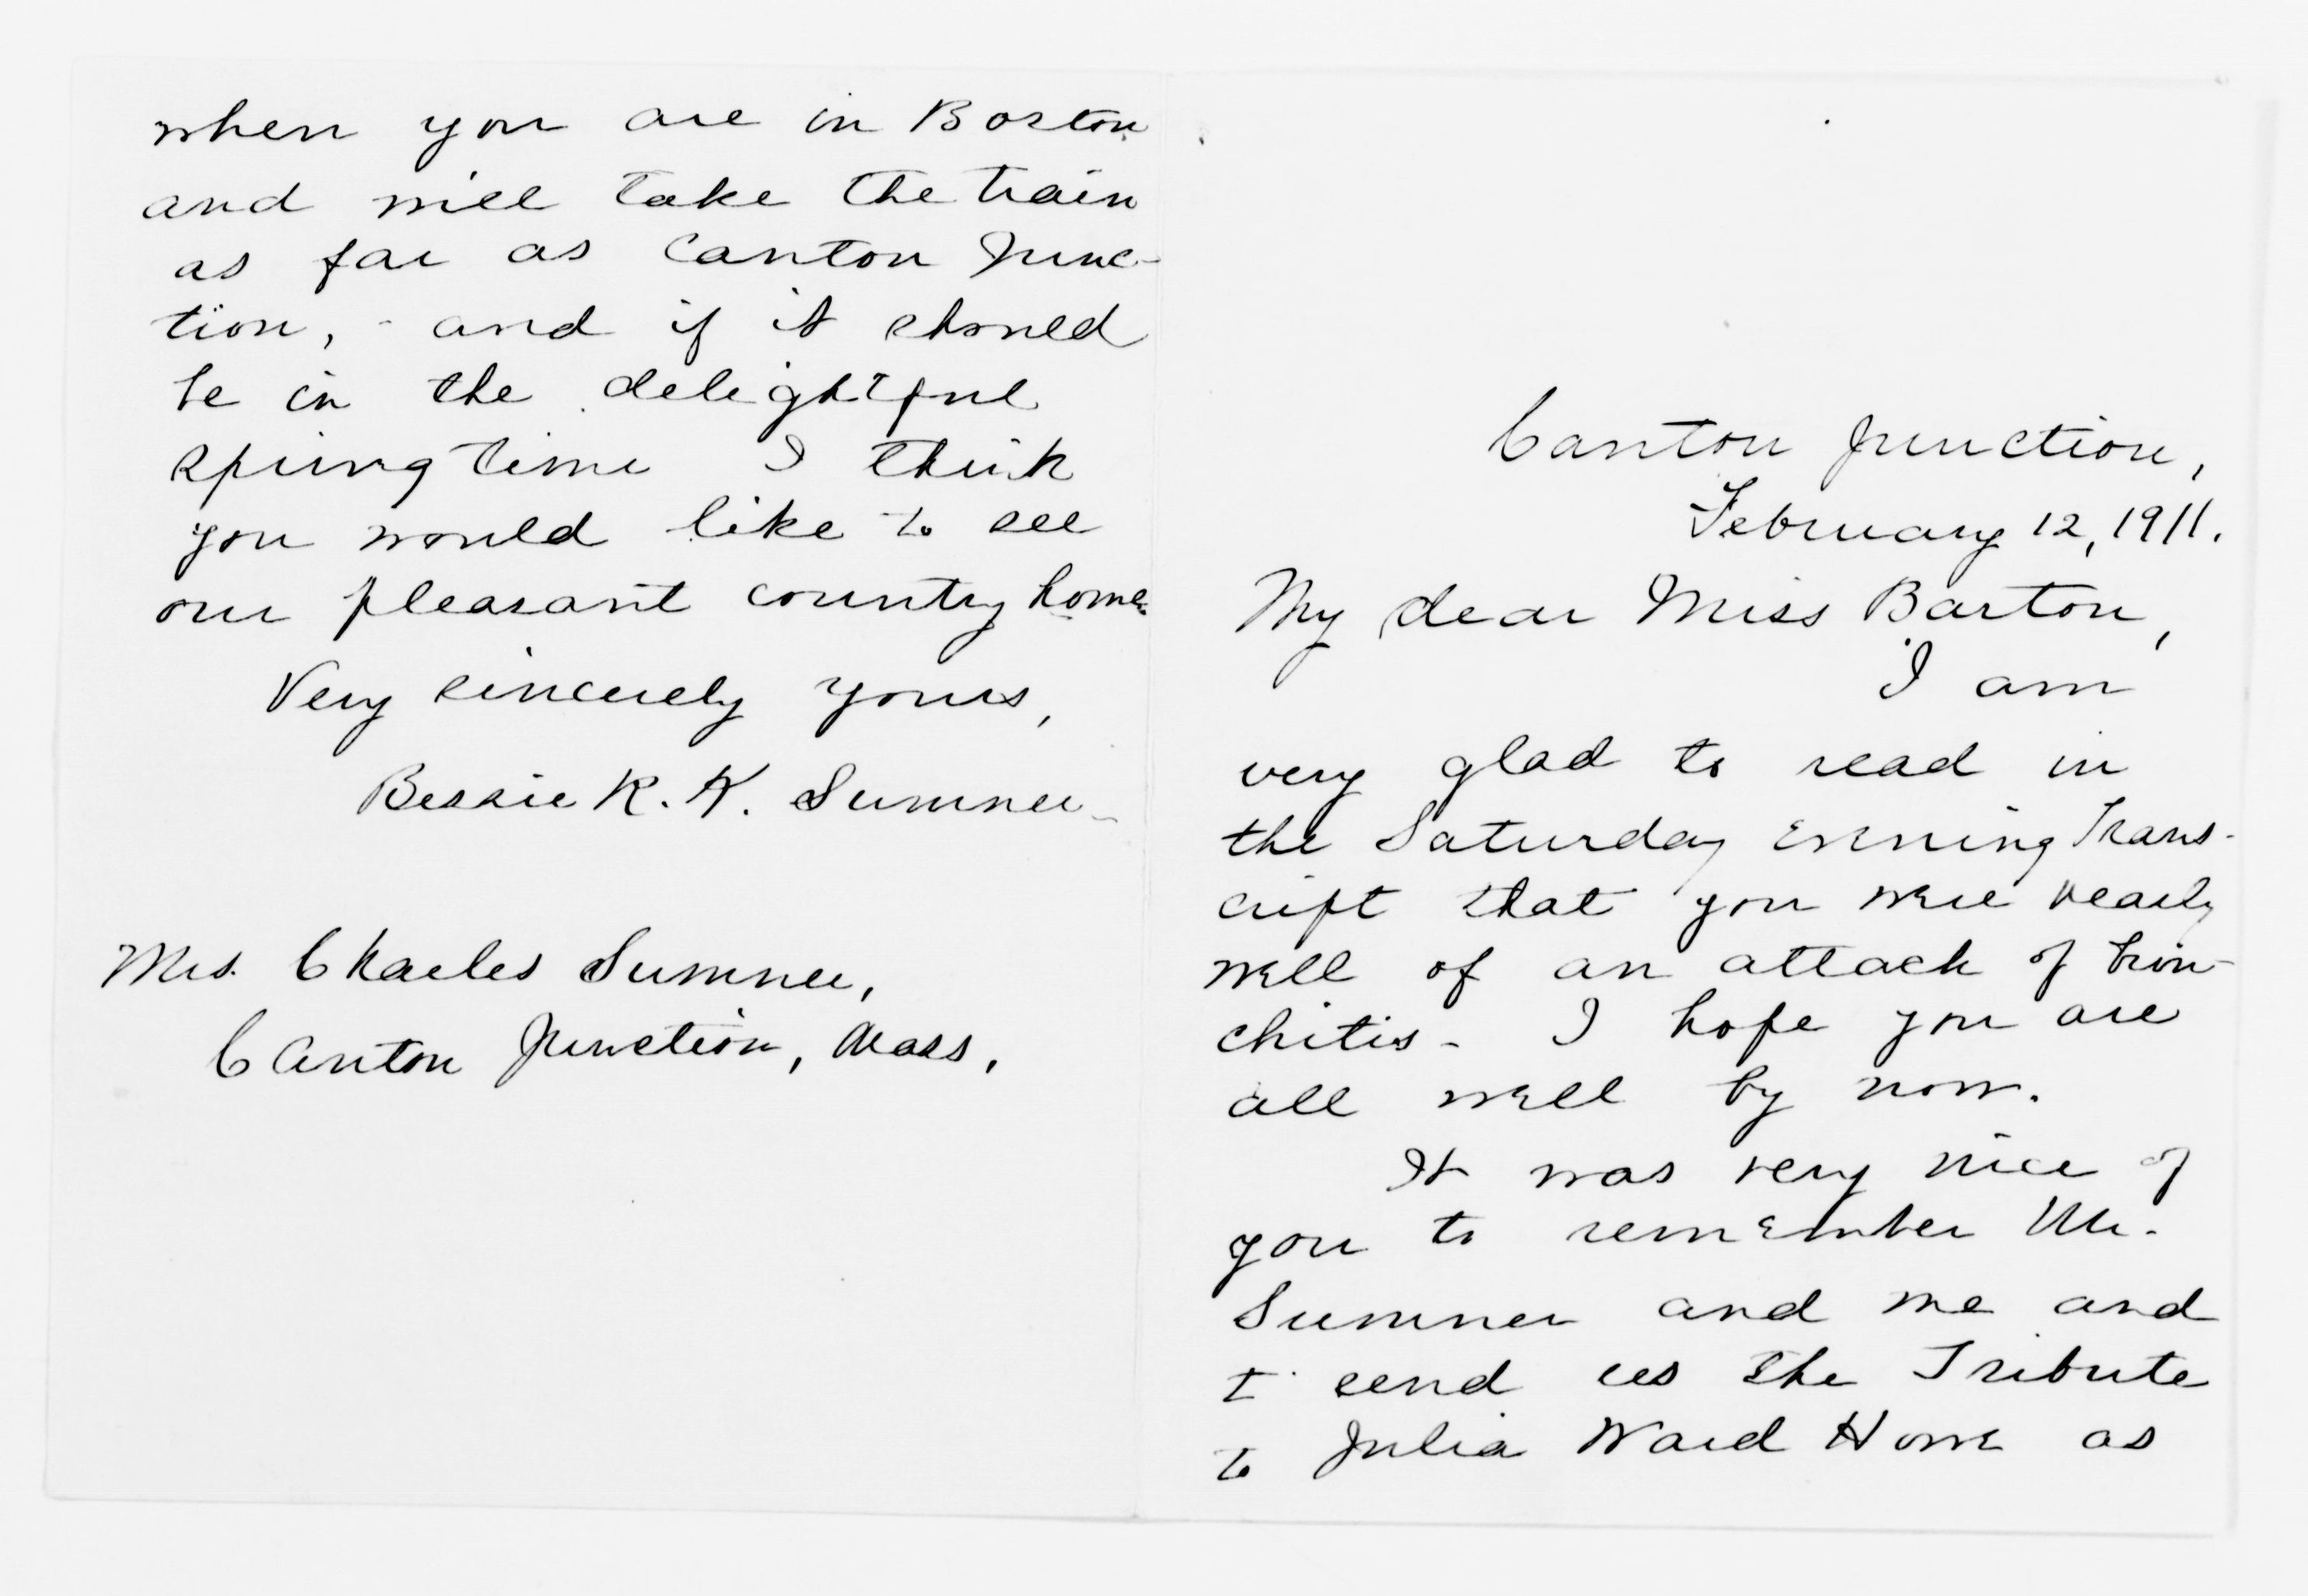 Canton Junction,
February 12, 1911.
My dear Miss Barton,
I am
very glad to read in
the Saturday Evening Trans-
cript that you were nearly
well of an attack of bron-
chitis - I hope you are
all well by now.
It was very nice of
you to remember Mr.
Sumner and me and
to send us the Tribute
to Julia Ward Howe as
when you are in Boston
and will take the train
as far as Canton Junc-
tion, - and if it should
be in the delightful
spring time I think
you would like to see
our pleasant country home.
Very sincerely yours,
Bessie R. K. Sumner -
Mrs. Charles Sumner,
Canton Junction, Mass,